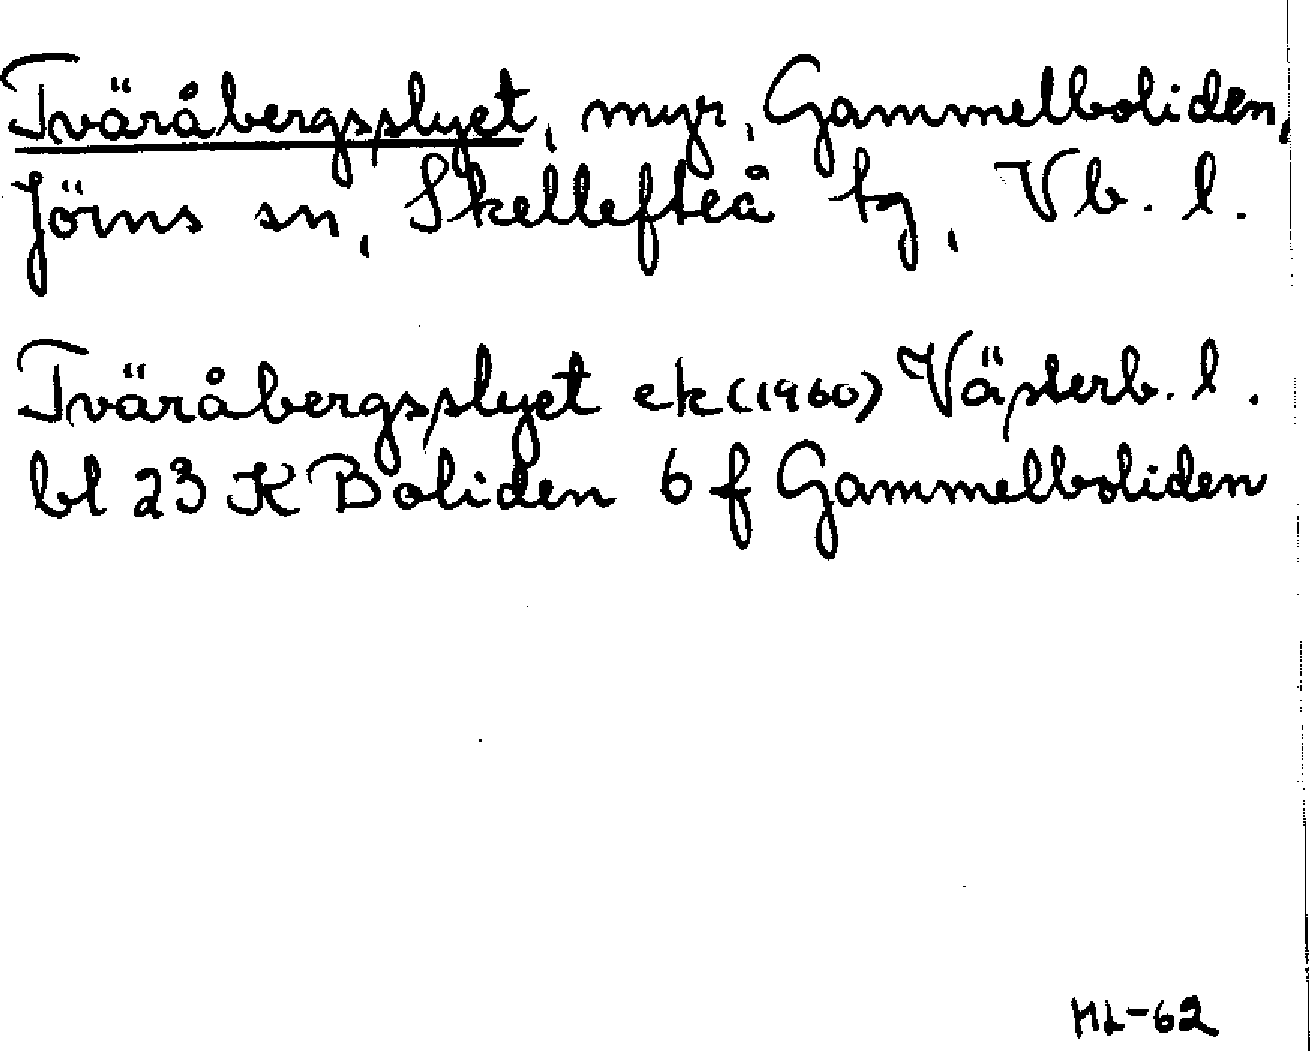 Tväråbergsslyet, myr, Gammelboliden,
Jörns sn, Skellefteå tg, Vb. l.
Tväråbergsslyet ek (1960) Västerb. l.
bl 23 K Boliden 6 f Gammelboliden
ML-62